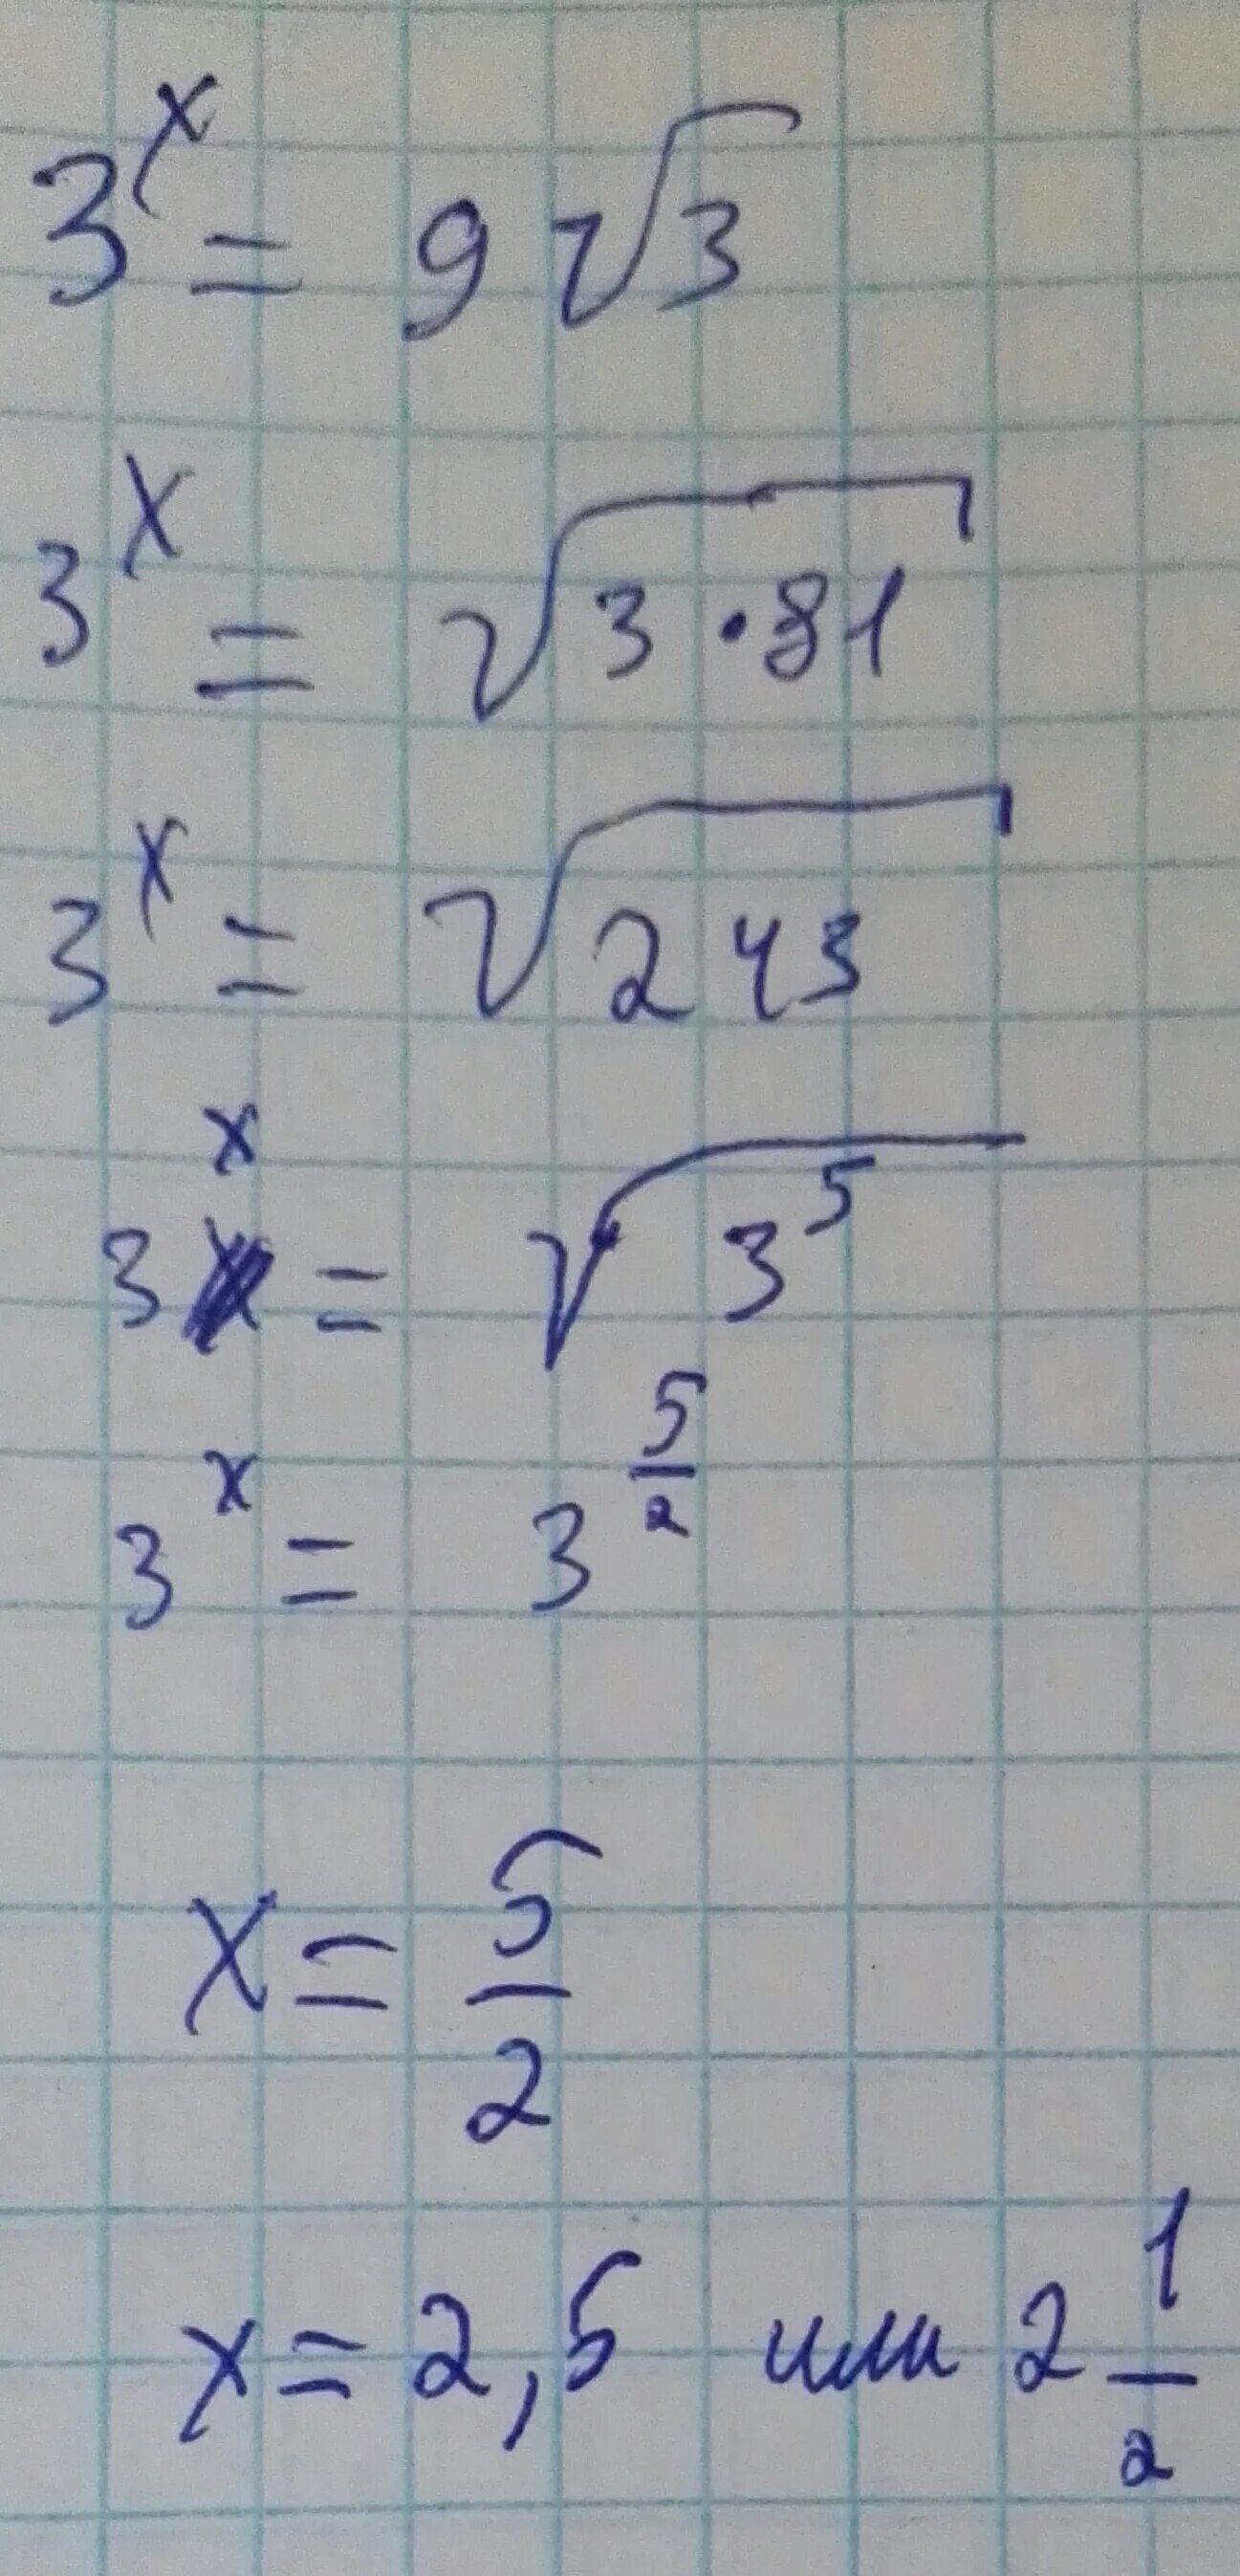 3ˣ = 9√3
3ˣ = √(3·81)
3ˣ = √243
3ˣ = √3⁵
3ˣ = 3^(5/2)
x = 5/2
x = 2,5 или 2 1/2